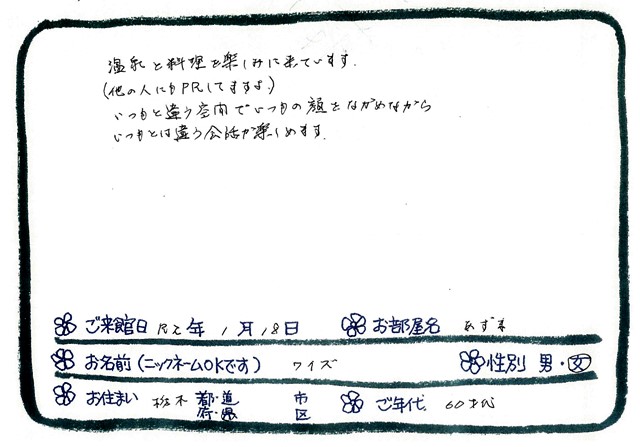 温泉と料理を楽しみに来ています。
(他の人にもPRしてますよ)
いつもと違う空間でいつもの顔をながめながら
いつもとは違う会話が楽しめます。
ご来館日 R2年 1月18日 お部屋名 あずま
お名前(ニックネームOKです) ワイズ 性別 男・女
お住まい 栃木 都・道 府・県 市 区 ご年代 60才代